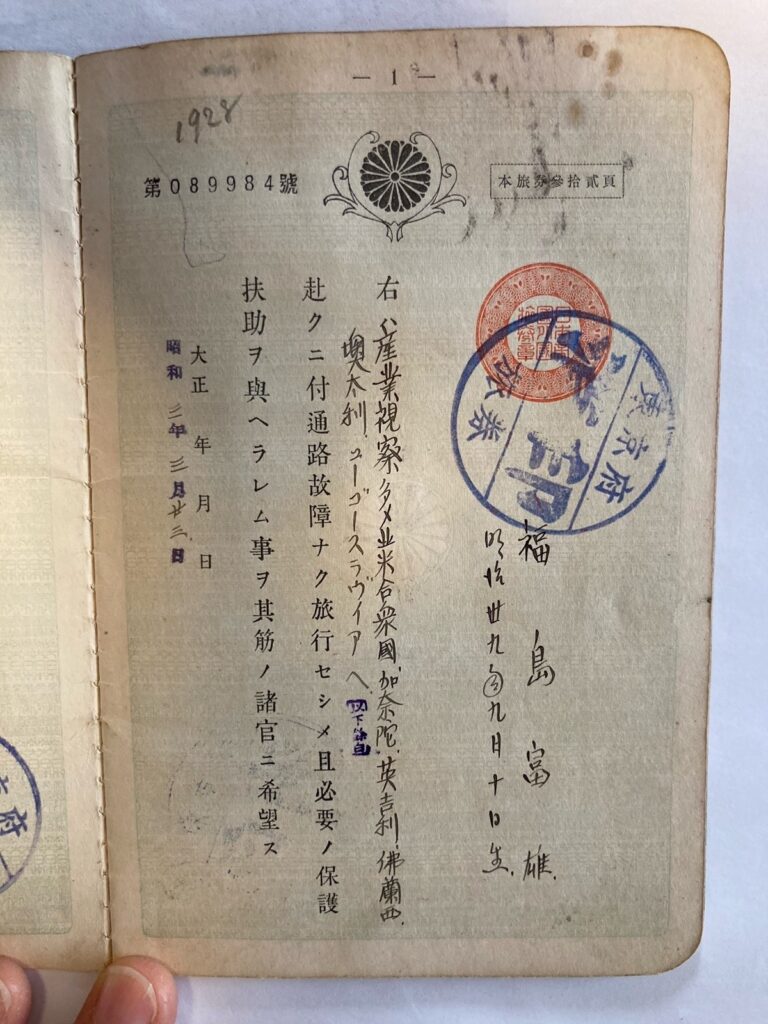 — 1 —
1928
第089984號
本旅券參拾貳頁
日本帝國外國旅券之章
東京府
印
旅券
福島富雄
明治卅九年九月十日生
右ハ產業視察ノタメ北米合衆國、加奈陀、英吉利、佛蘭西、
墺太利、ユーゴースラヴィアヘ
以下餘白
赴クニ付通路故障ナク旅行セシメ且必要ノ保護
扶助ヲ與ヘラレム事ヲ其筋ノ諸官ニ希望ス
大正 年 月 日
昭和三年三月廿三日
京府